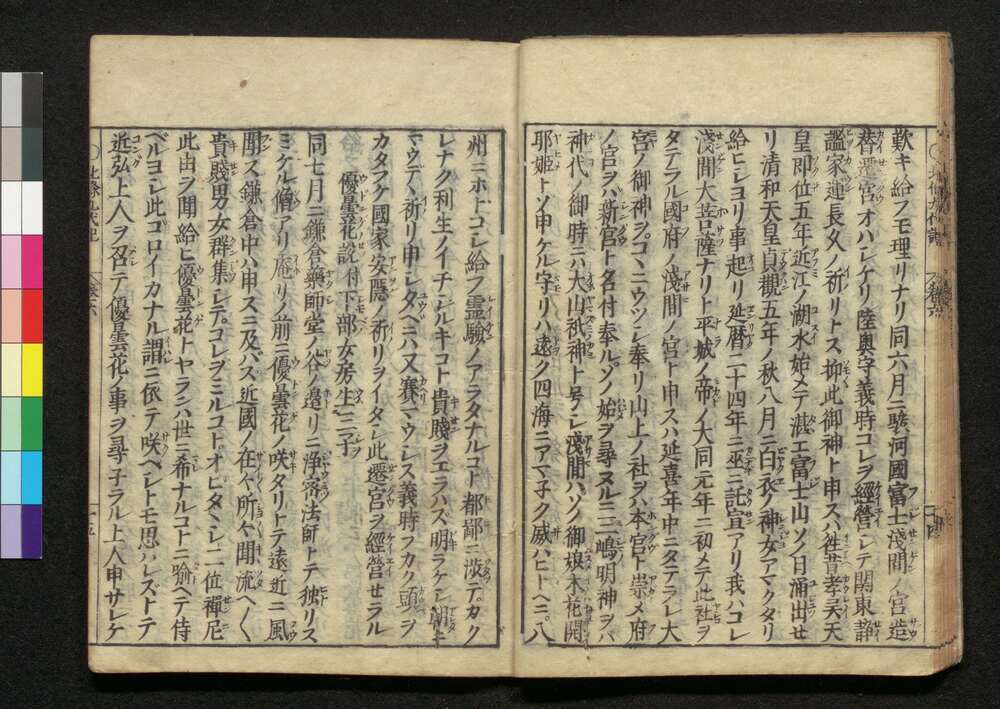 歎キ給フモ理リナリ同六月ニ駿河國富士淺間ノ宮造
替遷宮オハシケリ陸奥守義時コレヲ經營シテ関東静
謐家運長久ノ祈リトス抑此御神ト申スハ徃昔孝天天
皇即位五年近江ノ湖水始メテ湛エ富士山ソノ日涌出せ
リ清和天皇貞觀五年ノ秋八月ニ白衣ノ神女アマクタリ
給ヒシヨリ事起リ延暦二十四年ニ巫ニ託宣アリ我ハコレ
淺間大菩薩ナリト平城ノ帝ノ大同元年ニ初メテ此社ヲ
タテラル國府ノ淺間ノ宮ト申スハ延喜年中ニタテラレ大
宮ノ御神ヲコヽニウツシ奉リ山上ノ社ヲハ本宮ト崇メ府
ノ宮ヲハ新宮ト名付奉ルソノ始ヲ尋ヌルニ三嶋明神ヲハ
神代ノ御時ニハ大山祇神ト号シ淺間ハソノ御娘木花開
耶姫トソ申ケル守リハ遠ク四海ニアマ子ク威ハヒトヘニ八
州ニホトコシ給フ霊驗ノアラタナルコト都鄙ニ渋テカク
レナク利生ノイチシルキコト貴賤ヲエラハズ明ラケシ朝キ
マウデヽ祈リ申シタヘハ又賽マウシス義時フカク頭ヲ
カタフケ國家安隱ノ祈リヲイタシ此遷宮ヲ經營せラル
優曇花說付下部女房生三子
同七月ニ鎌倉藥師堂ノ谷ノ邉リニ浄密法師トテ独リス
ミケル僧アリ庵リノ前ニ優曇花ノ咲タリトテ遠近ニ風
聞ス鎌倉中ハ申スニ及バズ近國ノ在々所々聞流ヘく
貴賤男女群集シテコレヲミルコトオビタヽシ二位禪尼
此由ヲ聞給ヒ優曇花トヤランハ世ニ希ナルコトニ喩ヘテ侍
ベルヨシ此コロイカナル謂ニ依テ咲ヘシトモ思ハレズトテ
近弘上人ヲ召テ優曇花ノ事ヲ尋子ラル上人申サレケ